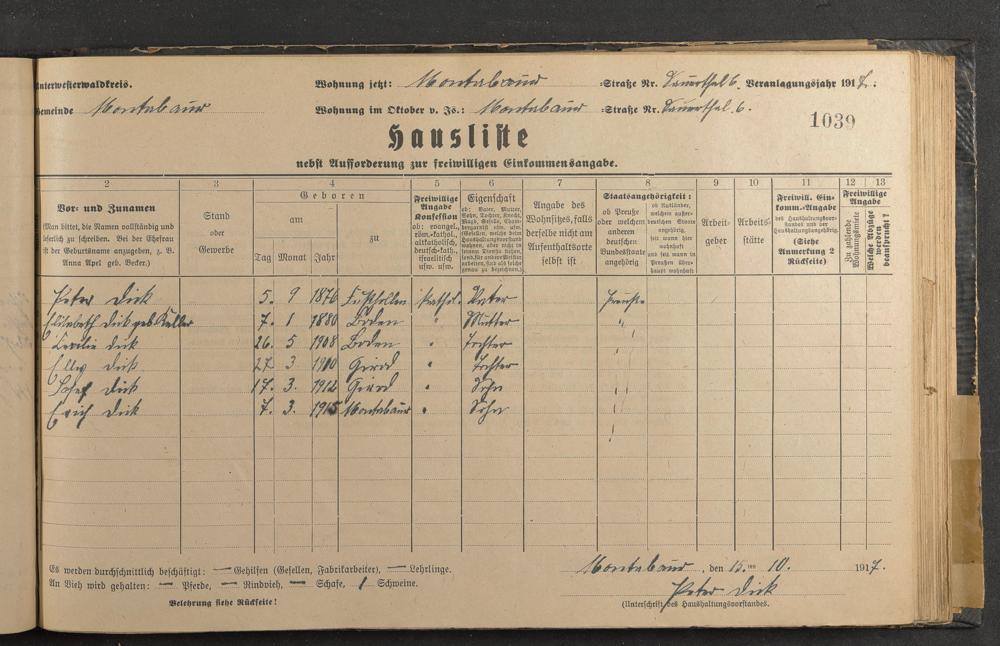 Unterwesterwaldkreis. Wohnung jetzt: Montabaur Straße Nr. Sauerthal 6. Veranlagungsjahr 1917.
Gemeinde Montabaur Wohnung im Oktober v. Js.: Montabaur Straße Nr. Sauerthal 6.
1039
Hausliste
nebst Aufforderung zur freiwilligen Einkommensangabe.
2 3 4 5 6 7 8 9 10 11 12 13
Vor- und Zunamen
(Man bittet, die Namen vollständig und
leserlich zu schreiben. Bei der Ehefrau
ist der Geburtsname anzugeben, z. B.
Anna Apel geb. Becker.)
Stand
oder
Gewerbe
Geboren
am
zu
Tag Monat Jahr
Freiwillige
Angabe
Konfession
ob: evangel.,
röm.-kathol.,
altkatholisch,
deutsch-kath.,
israelitisch
usw. usw.
Eigenschaft
ob: Vater, Mutter,
Sohn, Tochter, Knecht,
Magd, Geselle, Cham-
bergarnist usw. usw.
Angabe des
Wohnsitzes, falls
derselbe nicht am
Aufenthaltsorte
selbst ist
Staatsangehörigkeit:
ob Preuße
oder welchem
anderen
deutschen
Bundesstaate
angehörig
ob Ausländer,
welchem außer-
deutschen Staate
angehörig,
seit wann hier
wohnhaft
und seit wann in
Preußen über-
haupt wohnhaft
Arbeit-
geber
Arbeits-
stätte
Freiwill. Ein-
komm.-Angabe
des Haushaltungsvor-
standes und der
Haushaltungsangehörig.
(Siehe
Anmerkung 2
Rückseite)
Freiwillige
Angabe
Zu zahlende
Wohnungsmiete
Welche Abzüge
werden
beansprucht?
Peter Dick 5. 9 1876 kathol. Vater Preuße
Elisabeth Dick geb. Keller 7. 1 1880 Boden " Mutter "
Cecilie Dick 26. 5 1908 Boden " Tochter "
Elly Dick 27 3 1910 Girod " Tochter "
Josef Dick 17. 3. 1912 Girod " Sohn "
Erich Dick 7. 3. 1915 Montabaur " Sohn "
Es werden durchschnittlich beschäftigt: — Gehilfen (Gesellen, Fabrikarbeiter), — Lehrlinge.
An Vieh wird gehalten: — Pferde, — Rindvieh, — Schafe, 1 Schweine.
Belehrung siehe Rückseite!
Montabaur, den 15. ten 10. 1917.
Peter Dick
(Unterschrift des Haushaltungsvorstandes.